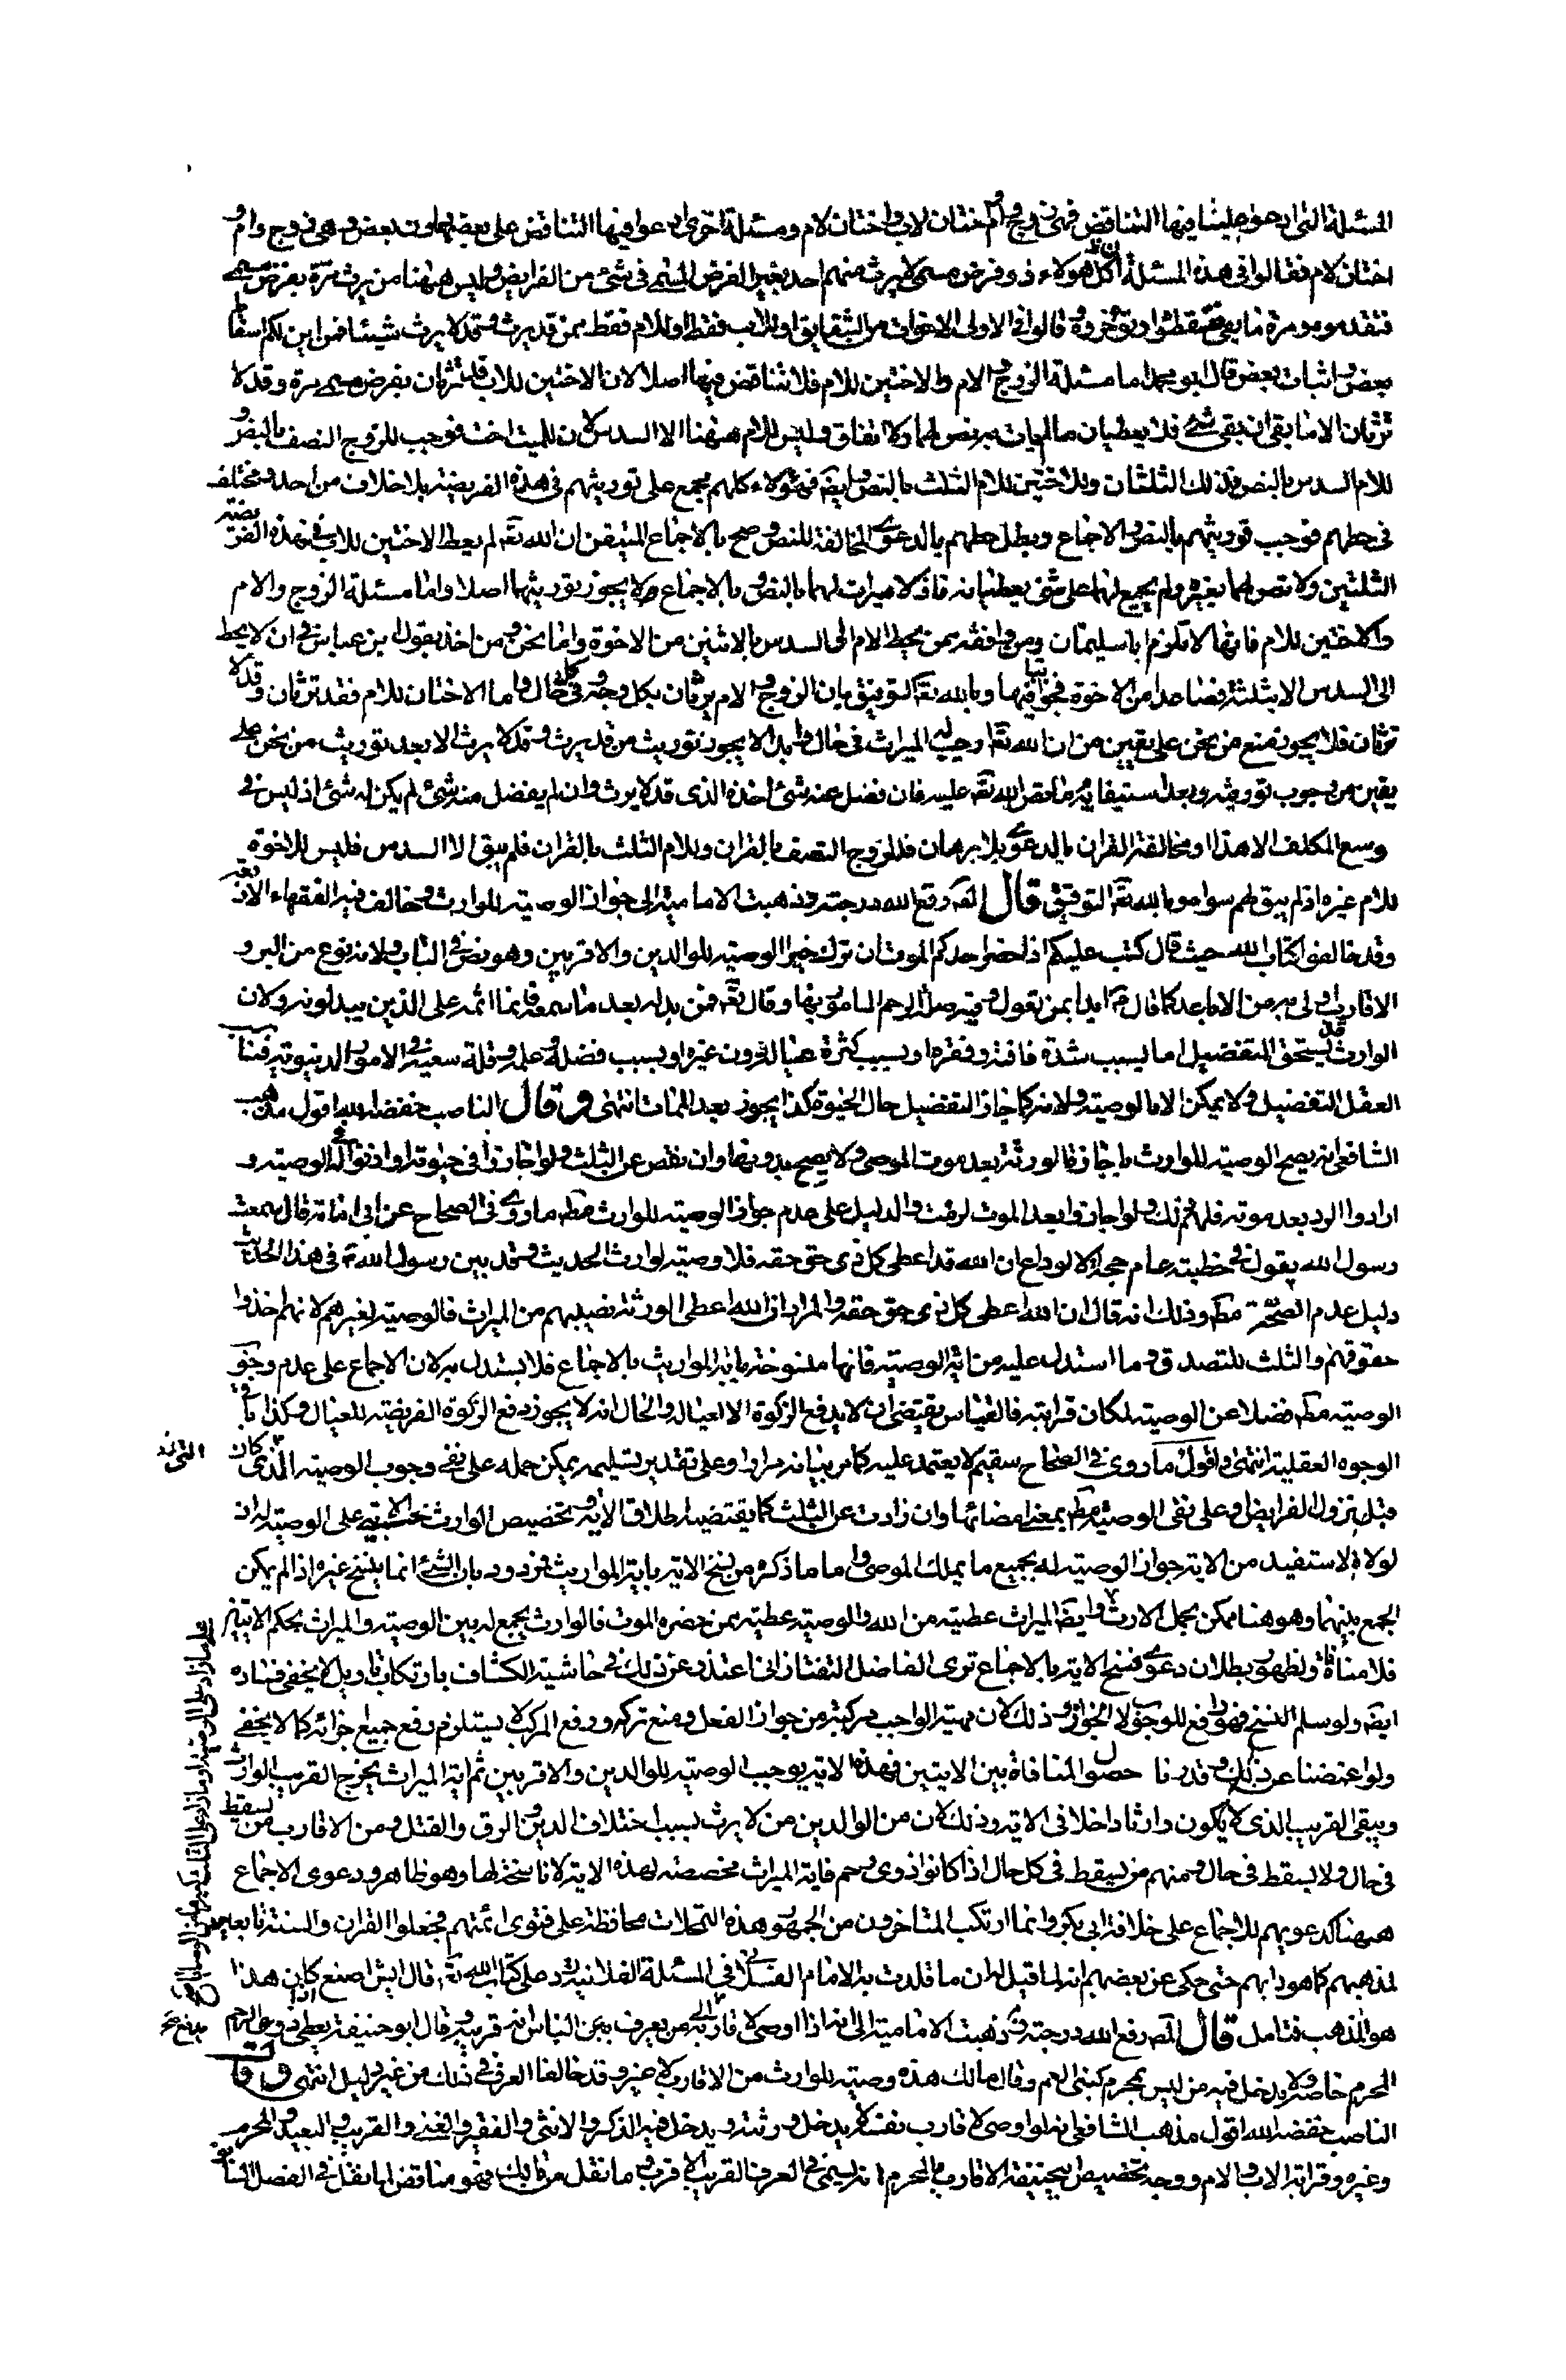 المسئلة التى ادعوا علينا فيها التناقض فهى زوج وام واختان لاب واختان لام ومسئلة اخرى ادعوا فيها التناقض على بعضنا دون بعض وهى زوج وام و
اختان لام فقالوا فى هذه المسئلة ان كل هولاء ذو فرض مسمى لا يرث منهم احد بغير الفرض المسمى فى شئ من الفرايض وليس ههنا من يرث مرة بفرض مسمى
فتقدموه ومرة ما بقى فتسقطوا او تؤخروه قالوا فى الاولى الاخوات من الشقايق او للاب فقط او للام فقط ممن قد يرث وقد لا يرث شيئا فمن اين لكم اسقاط
بعض واثبات بعض قال ابو محمد اما مسئلة الزوج والام والاختين للام فلا تناقض فيها اصلا لان الاختين للاب قد ترثان بفرض مسمى مرة وقد لا
ترثان الا ما بقى ان بقى شئ فلا يعطيان ما لم يات به نص لهما ولا اتفاق وليس للام ههنا الا السدس لان للميت اخت فوجب للزوج النصف بالنص و
للام السدس بالنص فذلك الثلثان وللاختين للام الثلث بالنص وايضه فهؤلاء كلهم مجمع على توريثهم فى هذه الفريضة بلا خلاف من احد ومختلف
فى حطهم فوجب توريثهم بالنص والاجماع وبطل حطهم بالدعوى المخالفة للنص وصح بالاجماع المتيقن ان الله تعه لم يعط الاختين للاب فى هذه الفريضة
الثلثين ولا نص لهما بغيره ولم يجمع لهما على شئ يعطيانه فاذ لا ميراث لهما بالنص ولا بالاجماع فلا يجوز توريثهما اصلا واما مسئلة الزوج والام
والاختين للام فانها لا تلزم ابا سليمان ومن وافقه ممن يحط الام الى السدس بالاثنين من الاخوة واما نحن ومن اخذ بقول ابن عباس فى ان لا يحط
الى السدس الا بثلثة فصاعدا من الاخوة فجوابنا فيها وبالله تعه التوفيق بان الزوج والام يرثان بكل وجه فى كل حال واما الاختان للام فقد ترثان وقد لا
ترثان فلا يجوز منع من نحن على يقين من ان الله تعه اوجب له الميراث فى حال وابدا لا يجوز توريث من قد يرث وقد لا يرث الا بعد توريث من نحن على
يقين من وجوب توريثه وبعد استيفائه ما نص الله تعه عليه فان فضل عنه شئ اخذه الذى قد لا يرث وان لم يفضل منه شئ لم يكن له شئ اذ ليس فى
وسع المكلف الا هذا او مخالفة القران بالدعوى بلا برهان فللزوج النصف بالقران وللام الثلث بالقران فلم يبق الا السدس فليس للاخوة
للام غيره اذ لم يبق لهم سواه وبالله تعه التوفيق قال المصه رفع الله درجته وذهبت الامامية الى جواز الوصية للوارث وخالف فيه الفقهاء الاربعة
وقد خالفوا كتاب الله حيث قال كتب عليكم اذا حضر احدكم الموت ان ترك خيرا الوصية للوالدين والاقربين وهو نص فى الباب ولانه نوع من البر و
الاقارب اولى به من الاباعد كما قال ص ابدا بمن تعول وفيه صلة الرحم المامور بها وقال تعه فمن بدله بعد ما سمعه فانما اثمه على الذين يبدلونه ولان
الوارث قد يستحق التفضيل اما بسبب شدة فاقته وفقره او بسبب كثرة عياله دون غيره او بسبب فضله وعلمه وقلة سعيه فى الامور الدنيوية فيناسب
العقل التفضيل ولا يمكن الا بالوصية ولانه كما جاز التفضيل حال الحيوة كذا يجوز بعد الممات انتهى وقال الناصب خفضه الله اقول مذهب
الشافعى انه يصح الوصية للوارث باجازة الورثة بعد موت الموصى ولا يصح بدونها وان نقص عن الثلث ولو اجازوا فى حيوته او اذنوا له فى الوصية و
ارادوا الرد بعد موته فلهم ذلك ولو اجازوا بعد الموت لزمت والدليل على عدم جواز الوصية للوارث مطه ما روى فى الصحاح عن ابى امامة قال سمعت
رسول الله يقول فى خطبته عام حجة الوداع ان الله قد اعطى كل ذى حق حقه فلا وصية لوارث الحديث وقد بين رسول الله ص فى هذا الحديث
دليل عدم الصحة مطه وذلك انه قال ان الله اعطى كل ذى حق حقه والمراد ان الله اعطى الورثة نصيبهم من الميراث فالوصية لغيرهم لانهم اخذوا
حقوقهم والثلث للتصدق وما استدل عليه من اية الوصية فانها منسوخة باية المواريث بالاجماع فلا يستدل به لان الاجماع على عدم وجوب
الوصية مطه فضلا عن الوصية لمكان قرابته فالقياس يقتضى ان لا يدفع الزكوة الا العيال والحال انه لا يجوز دفع الزكوة الفريضة للعيال وكذا باقى
الوجوه العقلية انتهى واقول ما روى فى الصحاح سقيم لا يعتمد عليه كما مر بيانه مرارا وعلى تقدير تسليمه يمكن حمله على نفى وجوب الوصية الذى كان
قبل نزول الفرايض او على نفى الوصية مطه بمعنى امضائها وان زادت عن الثلث كما يقتضيه اطلاق الاية وتخصيص الوارث على الوصية له ان
لولاه لاستفيد من الاية جواز الوصية له بجميع ما يملك الموصى واما ما ذكره من نسخ الاية باية المواريث فمردود بان الشئ انما ينسخ غيره اذا لم يكن
الجمع بينهما وهو هنا ممكن بجمل الارث وايضه الميراث عطية من الله والوصية عطية ممن حضره الموت فالوارث يجمع له بين الوصية والميراث بحكم الايتين
فلا منافاة ولظهور بطلان دعوى نسخ الاية بالاجماع ترى الفاضل التفتازانى اعتذر عن ذلك فى حاشية الكشاف بارتكاب تاويل لا يخفى فساده
ايضه ولو سلم النسخ فهو رافع للوجوب لا للجواز وذلك لان مهية الواجب مركبة من جواز الفعل ومنع تركه ورفع المركب لا يستلزم رفع جميع اجزائه كما لا يخفى
ولو اعتضنا عن ذلك وقدرنا حصول المنافاة بين الايتين فهذه الاية يوجب الوصية للوالدين والاقربين ثم اية الميراث يخرج القريب الوارث
ويبقى القريب الذى لا يكون وارثا داخلا فى الاية وذلك لان من الوالدين من لا يرث بسبب اختلاف الدين والرق والقتل ومن الاقارب من يسقط
فى حال ولا يسقط فى حال ومنهم من يسقط فى كل حال اذا كانوا ذوى رحم فاية الميراث مخصصة لهذه الاية لا ناسخة لها وهو ظاهر ودعوى الاجماع
ههنا كدعويهم للاجماع على خلافة ابى بكر وانما ارتكب المتاخرون من الجمهور هذه التمحلات محافظة على فتوى ائمتهم فجعلوا القران والسنة تابعا
لمذهبهم كما هو دابهم حتى حكى عن بعضهم انه لما قيل له ان ما قلدت به الامام الفلانى فى المسئلة الفلانية رد على كتاب الله تعه قال ايش اصنع اذا كان هذا
هو المذهب فتامل قال المصه رفع الله درجته وذهبت الامامية الى انه اذا اوصى لاقاربه من يعرف بين الناس انه قريبه وقال ابو حنيفة يعطى ذوى الرحم
المحرم خاصة ولا يدخل فيه من ليس بمحرم كبنى العم وقال مالك هذه وصية للوارث من الاقارب لا غير وقد خالفا العرف فى ذلك من غير دليل انتهى وقال
الناصب خفضه الله اقول مذهب الشافعى انه لو اوصى لاقارب نفسه لا يدخل ورثته ويدخل فيه الذكر والانثى والفقير والغنى والقريب والبعيد والمحرم
وغيره وقرابة الاب والام ووجه تخصيص ابى حنيفة الاقارب بالمحرم انه يسمى فى العرف القريب الاقرب وما نقل من مالك فهو مناقض لما نقل فى الفصل السابق